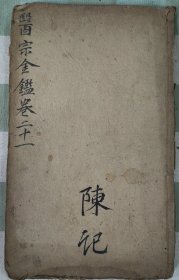 醫宗金鑑卷二十一
陳記